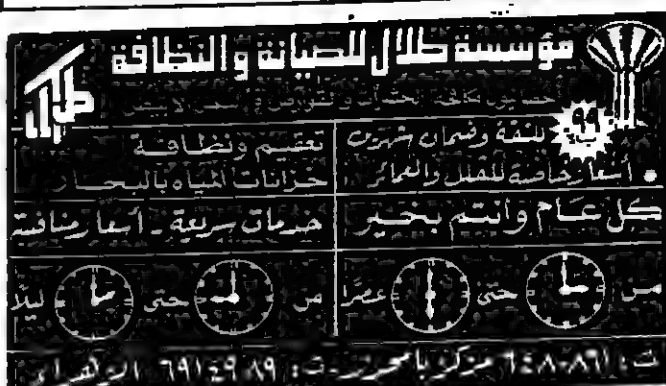 مؤسسة طلال للصيانة والنظافة
طلال
٩٩ للشقة وضمان شهرين
• أسعار خاصة للفلل والعمائر
تعقيم ونظافة
خزانات المياه بالبخار
كل عام وانتم بخير
خدمات سريعة - أسعار منافسة
من حتى عصرًا
من حتى ليلًا
ت: ٦٤٨٠٨٦١ مركز بامحرز - ت: ٦٩١٤٩٨٩ الزهراء